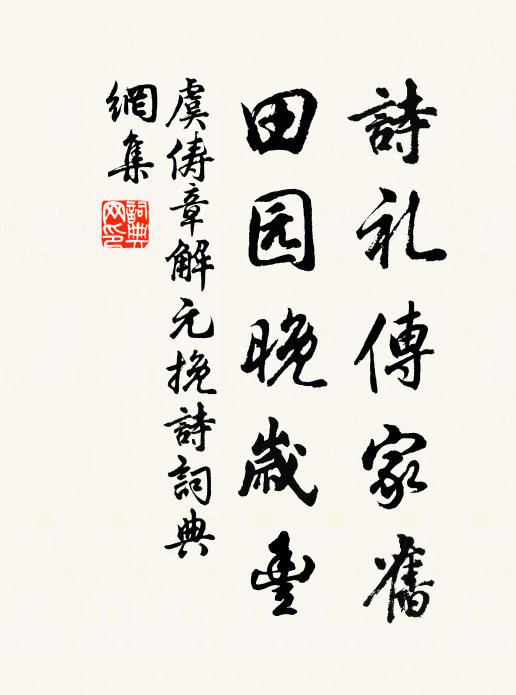 詩礼傳家舊
田园晚歲豊
虞俦章解元挽詩詞典
網集
詞典網印